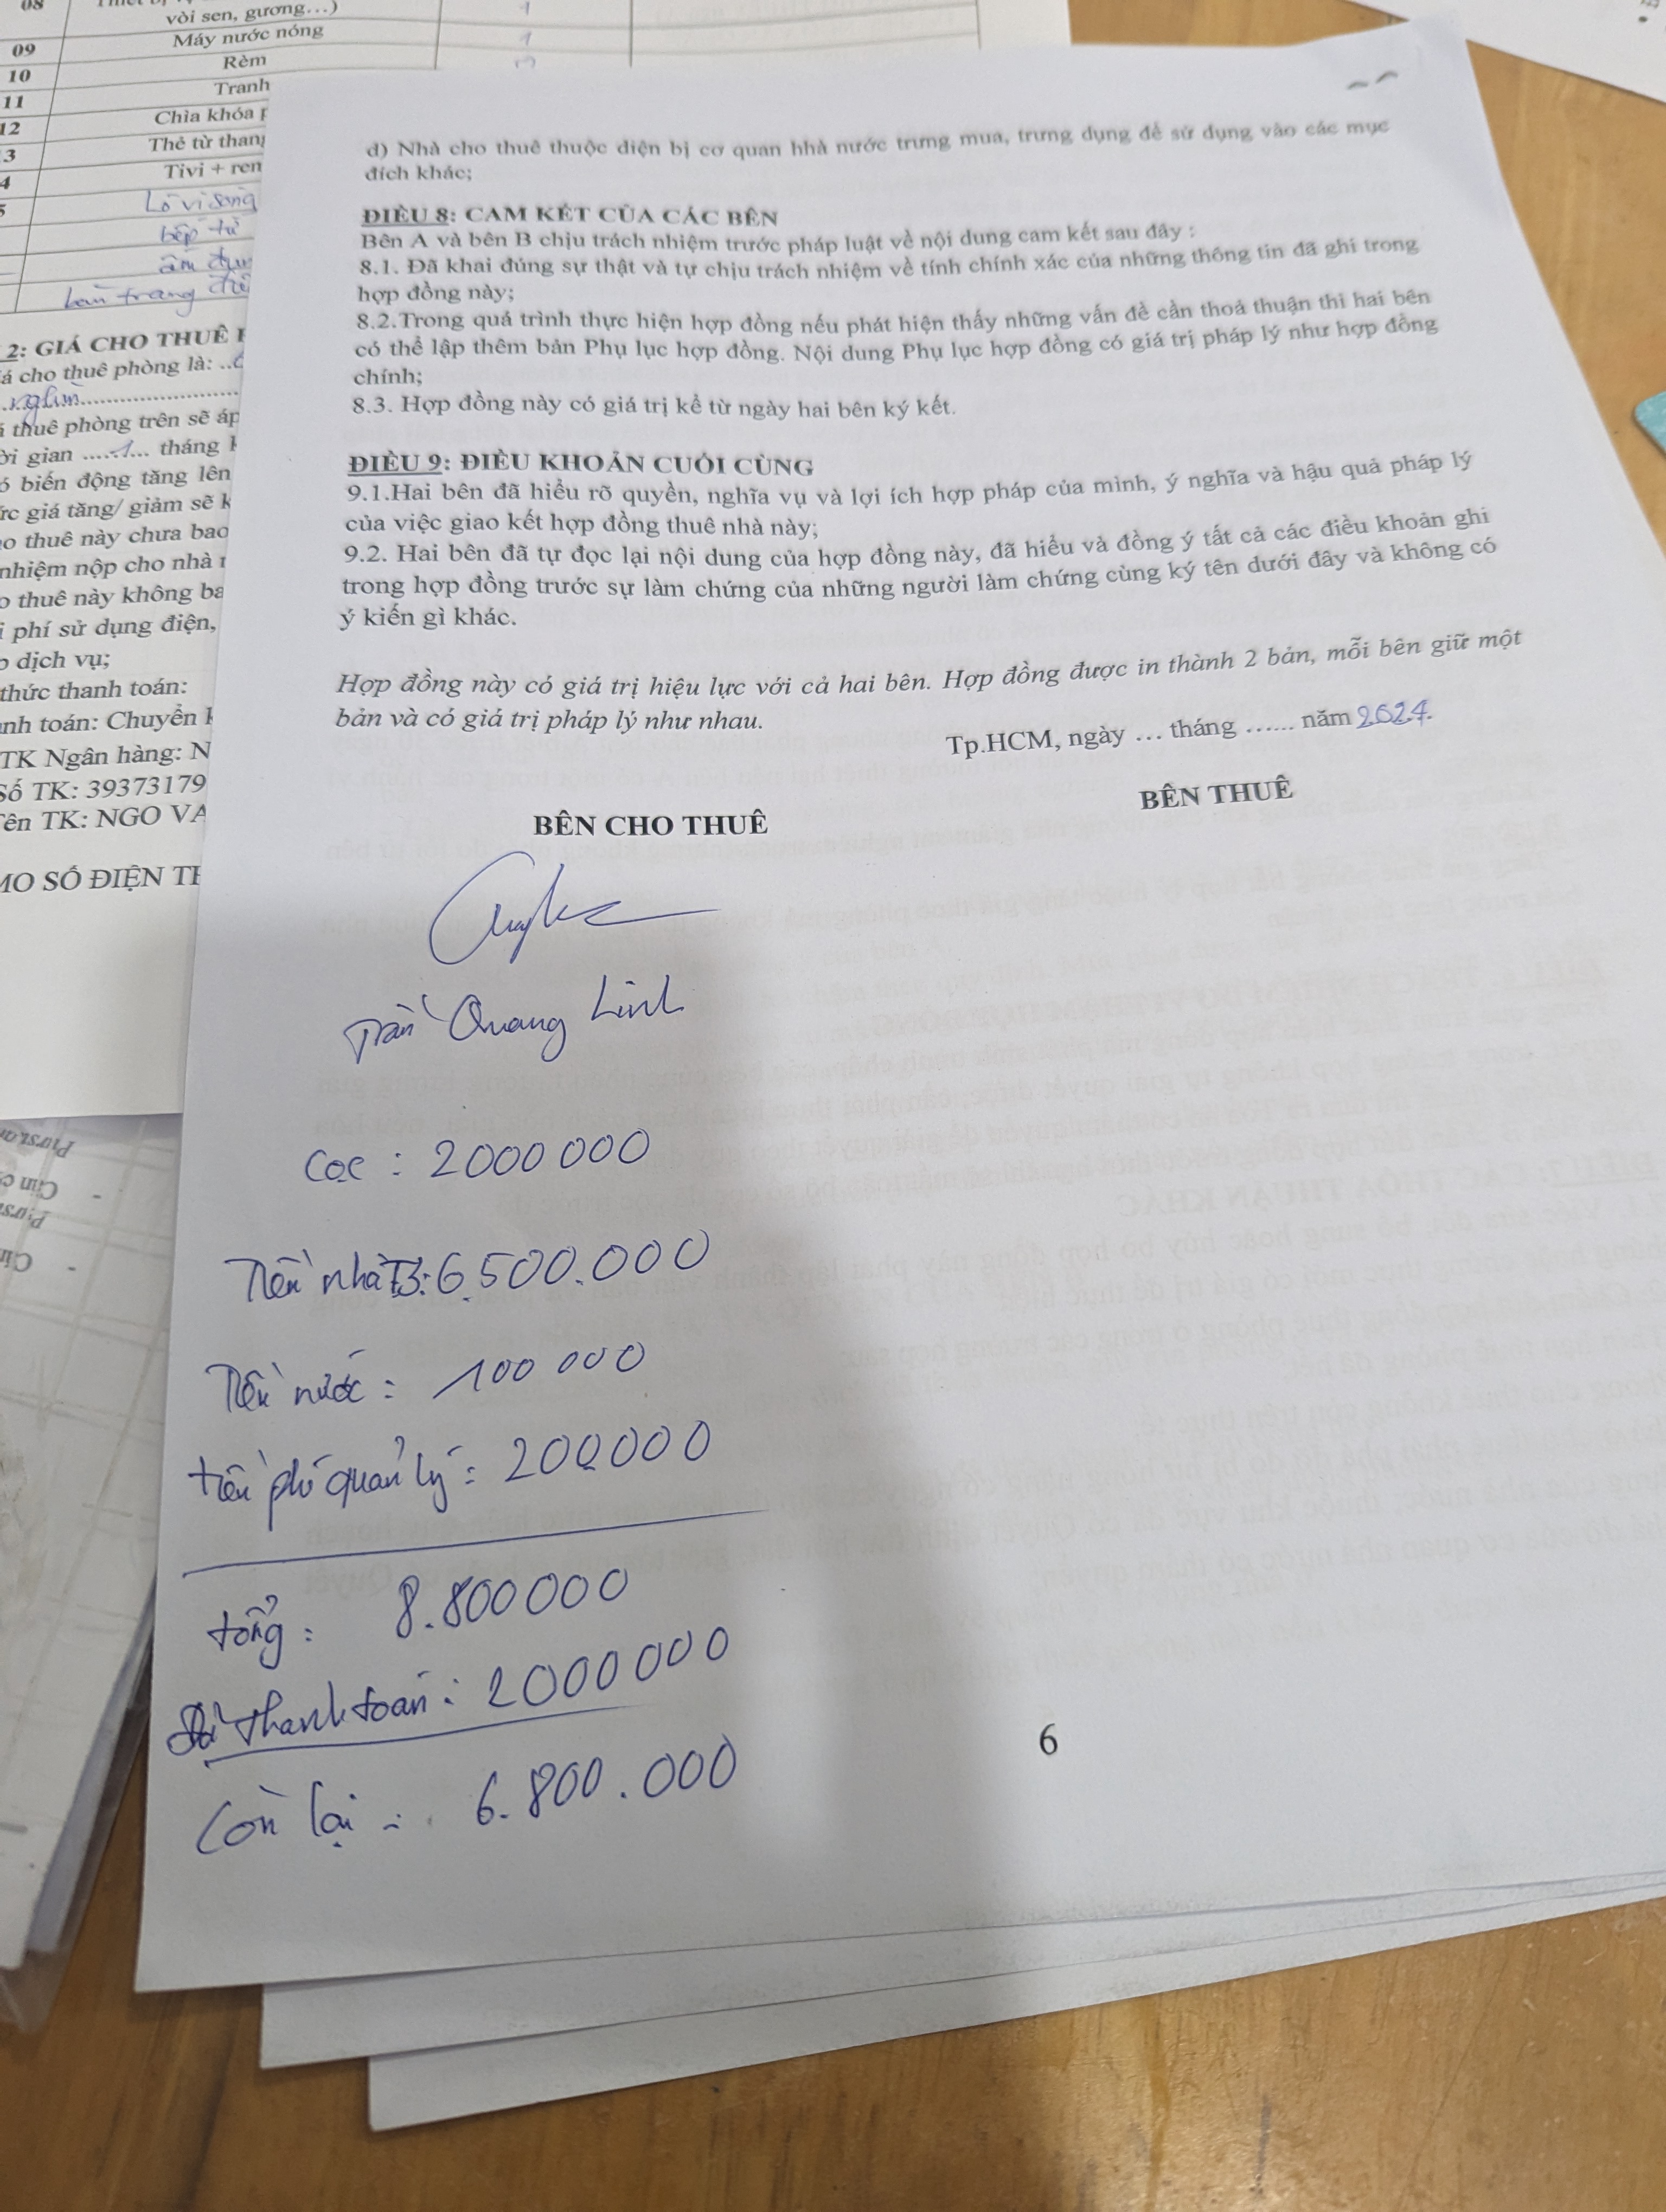 08
vòi sen, gương…)
1
09
Máy nước nóng
1
10
Rèm
11
Tranh
12
Chìa khóa
3
Thẻ từ thang
4
Tivi + ren
5
Lò vi sóng
bếp từ
âm
bàn trang
2: GIÁ CHO THUÊ
cho thuê phòng là: ..
thuê phòng trên sẽ áp
gian ......1... tháng
biến động tăng lên
giá tăng/ giảm sẽ
thuê này chưa bao
nhiệm nộp cho nhà
thuê này không
phí sử dụng điện,
dịch vụ;
thức thanh toán:
toán: Chuyển
TK Ngân hàng: N
Số TK: 39373179
Tên TK: NGO VA
SỐ ĐIỆN
d) Nhà cho thuê thuộc diện bị cơ quan hhà nước trưng mua, trưng dụng để sử dụng vào các mục
đích khác;
ĐIỀU 8: CAM KẾT CỦA CÁC BÊN
Bên A và bên B chịu trách nhiệm trước pháp luật về nội dung cam kết sau đây :
8.1. Đã khai đúng sự thật và tự chịu trách nhiệm về tính chính xác của những thông tin đã ghi trong
hợp đồng này;
8.2.Trong quá trình thực hiện hợp đồng nếu phát hiện thấy những vấn đề cần thoả thuận thì hai bên
có thể lập thêm bản Phụ lục hợp đồng. Nội dung Phụ lục hợp đồng có giá trị pháp lý như hợp đồng
chính;
8.3. Hợp đồng này có giá trị kể từ ngày hai bên ký kết.
ĐIỀU 9: ĐIỀU KHOẢN CUỐI CÙNG
9.1.Hai bên đã hiểu rõ quyền, nghĩa vụ và lợi ích hợp pháp của mình, ý nghĩa và hậu quả pháp lý
của việc giao kết hợp đồng thuê nhà này;
9.2. Hai bên đã tự đọc lại nội dung của hợp đồng này, đã hiểu và đồng ý tất cả các điều khoản ghi
trong hợp đồng trước sự làm chứng của những người làm chứng cùng ký tên dưới đây và không có
ý kiến gì khác.
Hợp đồng này có giá trị hiệu lực với cả hai bên. Hợp đồng được in thành 2 bản, mỗi bên giữ một
bản và có giá trị pháp lý như nhau.
Tp.HCM, ngày … tháng …… năm 2024.
BÊN CHO THUÊ
BÊN THUÊ
Trần Quang Linh
Cọc : 2000 000
Tiền nhà T3: 6.500.000
Tiền nước : 100 000
tiền phí quản lý : 200.000
tổng : 8.800000
Đã thanh toán : 2000000
Còn lại : 6.800.000
6